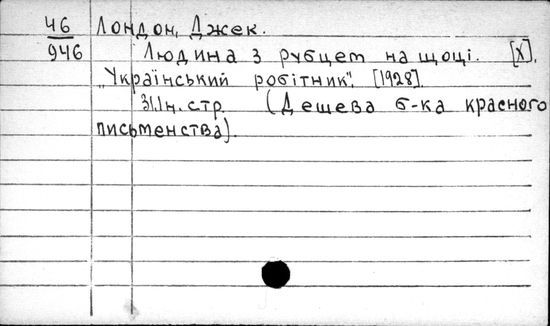 46 Лондон, Джек.
946 Людина з рубцем на щоці. [Х].
„Український робітник", [1928].
31,1н.стр. (Дешева б-ка красного
письменства).